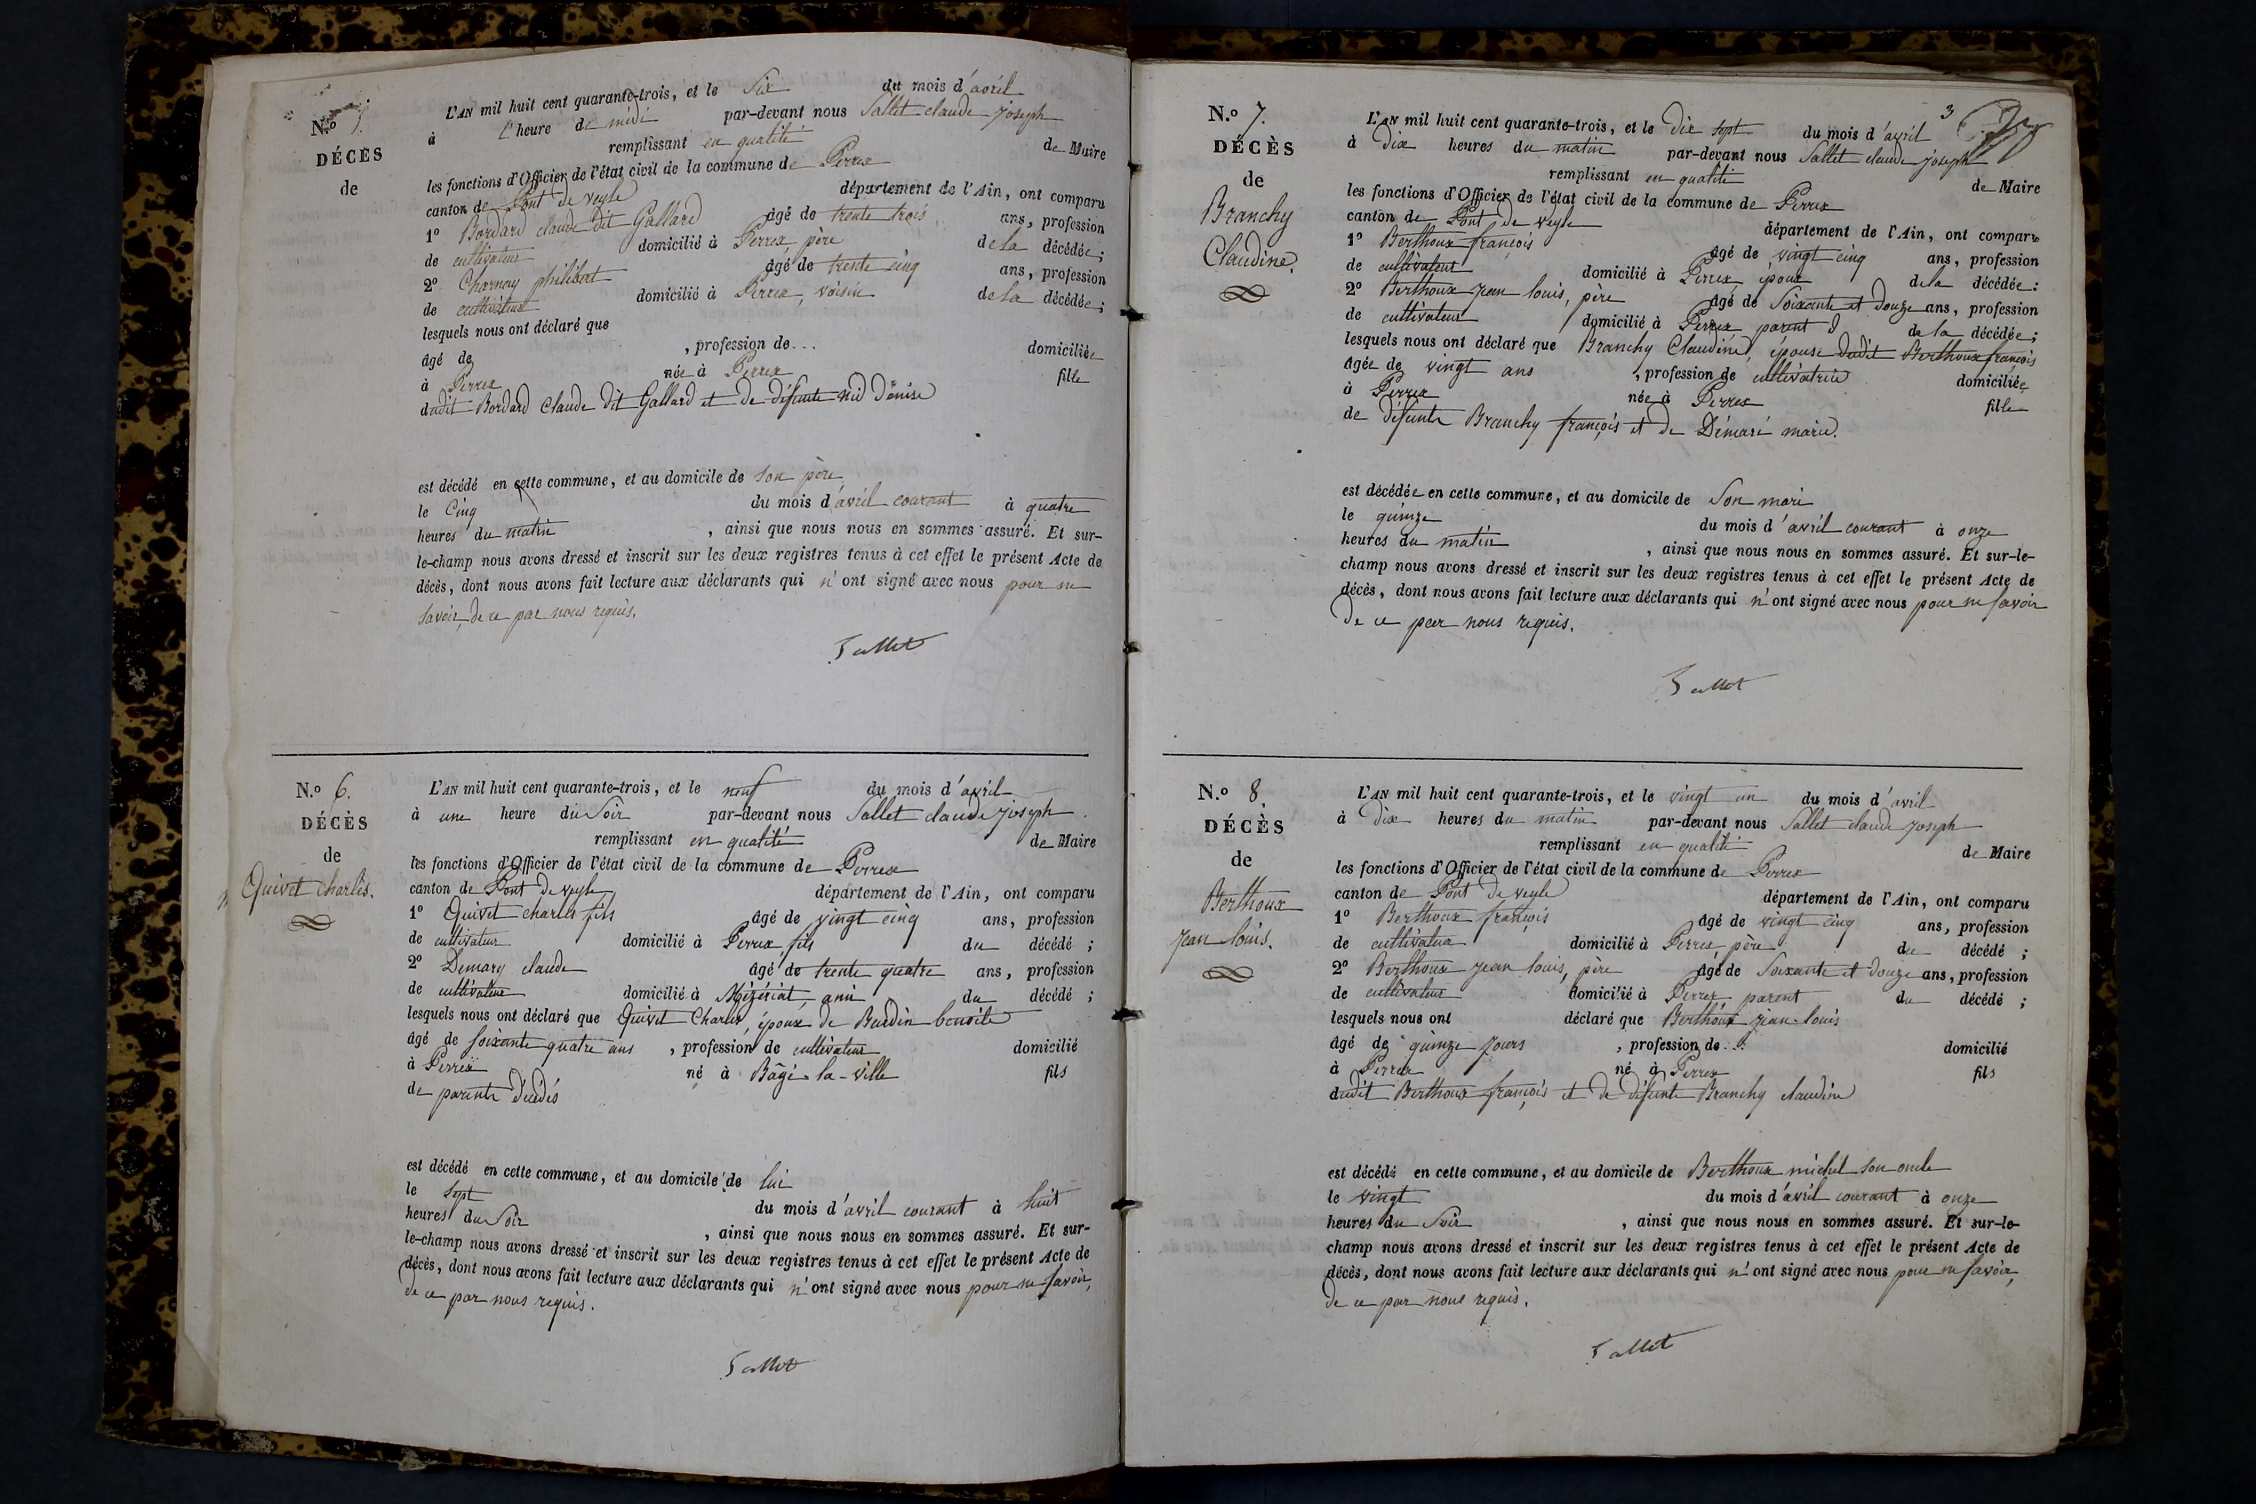 N.o 5.
DÉCÈS
de
L'AN mil huit cent quarante-trois, et le Six du mois d'avril
à l'heure de midi par-devant nous Sallet claude joseph
remplissant en qualité de Maire
les fonctions d'Officier de l'état civil de la commune de Perrex
canton de Pont de veyle département de l'Ain, ont comparu
1o Bordard claude dit Gallard âgé de trente trois ans, profession
de cultivateur domicilié à Perrex, père de la décédée ;
2o Charnay philibert âgé de trente cinq ans, profession
de cultivateur domicilié à Perrex, voisin de la décédée ;
lesquels nous ont déclaré que
âgé de , profession de ... domiciliée
à Perrex née à Perrex fille
dudit Bordard Claude dit Gallard et de défunte Denise
est décédé en cette commune, et au domicile de son père
le Cinq du mois d'avril courant à quatre
heures du matin , ainsi que nous nous en sommes assuré. Et sur-
le-champ nous avons dressé et inscrit sur les deux registres tenus à cet effet le présent Acte de
décès, dont nous avons fait lecture aux déclarants qui n'ont signé avec nous pour ne
savoir, de ce par nous requis.
Sallet
N.o 6.
DÉCÈS
de
Quivet Charles.
L'AN mil huit cent quarante-trois, et le neuf du mois d'avril
à une heure du Soir par-devant nous Sallet claude joseph
remplissant en qualité de Maire
les fonctions d'Officier de l'état civil de la commune de Perrex
canton de Pont de veyle département de l'Ain, ont comparu
1o Quivet charles fils âgé de vingt cinq ans, profession
de cultivateur domicilié à Perrex, fils du décédé ;
2o Demary claude âgé de trente quatre ans, profession
de cultivateur domicilié à Mézériat, ami du décédé ;
lesquels nous ont déclaré que Quivet Charles, époux de Burdin benoite
âgé de soixante quatre ans , profession de cultivateur domicilié
à Perrex né à Bâgé-la-ville fils
de parents décédés
est décédé en cette commune, et au domicile de lui
le sept du mois d'avril courant à huit
heures du Soir , ainsi que nous nous en sommes assuré. Et sur-
le-champ nous avons dressé et inscrit sur les deux registres tenus à cet effet le présent Acte de
décès, dont nous avons fait lecture aux déclarants qui n'ont signé avec nous pour ne savoir,
de ce par nous requis.
Sallet
3
N.o 7.
DÉCÈS
de
Branchy
Claudine.
L'AN mil huit cent quarante-trois, et le dix sept du mois d'avril
à dix heures du matin par-devant nous Sallet claude joseph
remplissant en qualité de Maire
les fonctions d'Officier de l'état civil de la commune de Perrex
canton de Pont de veyle département de l'Ain, ont comparu
1o Berthoux françois âgé de vingt cinq ans, profession
de cultivateur domicilié à Perrex, époux de la décédée ;
2o Berthoux jean louis, père âgé de Soixante et douze ans, profession
de cultivateur domicilié à Perrex, parent de la décédée ;
lesquels nous ont déclaré que Branchy Claudine, épouse dudit Berthoux françois
âgée de vingt ans , profession de cultivatrice domiciliée
à Perrex née à Perrex fille
de défunts Branchy françois et de Démaré marie.
est décédée en cette commune, et au domicile de Son mari
le quinze du mois d'avril courant à onze
heures du matin , ainsi que nous nous en sommes assuré. Et sur-le-
champ nous avons dressé et inscrit sur les deux registres tenus à cet effet le présent Acte de
décès, dont nous avons fait lecture aux déclarants qui n'ont signé avec nous pour ne savoir
de ce par nous requis.
Sallet
N.o 8.
DÉCÈS
de
Berthoux
jean louis.
L'AN mil huit cent quarante-trois, et le vingt un du mois d'avril
à dix heures du matin par-devant nous Sallet claude joseph
remplissant en qualité de Maire
les fonctions d'Officier de l'état civil de la commune de Perrex
canton de Pont de veyle département de l'Ain, ont comparu
1o Berthoux françois âgé de vingt cinq ans, profession
de cultivateur domicilié à Perrex père du décédé ;
2o Berthoux jean louis, père âgé de Soixante et douze ans, profession
de cultivateur domicilié à Perrex parent du décédé ;
lesquels nous ont déclaré que Berthoux jean-louis
âgé de quinze jours , profession de ... domicilié
à Perrex né à Perrex fils
dudit Berthoux françois et de défunte Branchy claudine
est décédé en cette commune, et au domicile de Berthoux michel son oncle
le vingt du mois d'avril courant à onze
heures du Soir , ainsi que nous nous en sommes assuré. Et sur-le-
champ nous avons dressé et inscrit sur les deux registres tenus à cet effet le présent Acte de
décès, dont nous avons fait lecture aux déclarants qui n'ont signé avec nous pour ne savoir,
de ce par nous requis.
Sallet